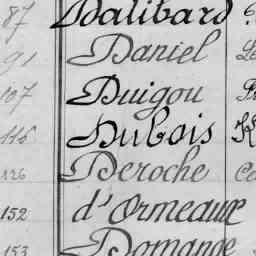 87 Dalibard
91 Daniel
107 Duigou
116 Dubois
126 Deroche
152 d'Ormeaux
153 Domange